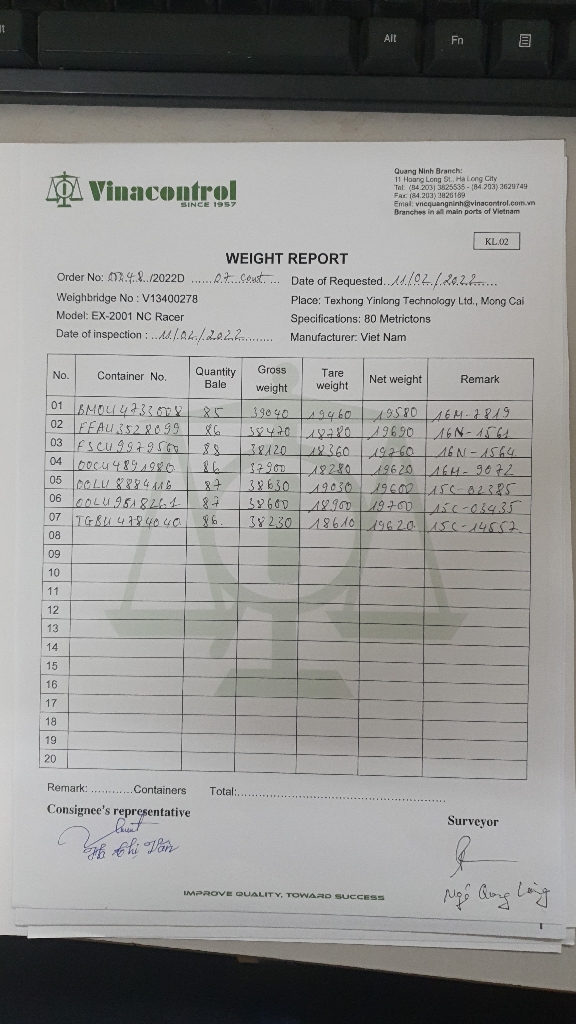 Alt
Fn
Vinacontrol
SINCE 1957
Quang Ninh Branch:
11 Hoang Long St., Ha Long City
Tel: (84.203) 3825535 - (84.203) 3629749
Fax: (84.203) 3826169
Email: vncquangninh@vinacontrol.com.vn
Branches in all main ports of Vietnam
KL.02
WEIGHT REPORT
Order No: 0348./2022D ......07 cont... Date of Requested..11/02/2022....
Weighbridge No : V13400278 Place: Texhong Yinlong Technology Ltd., Mong Cai
Model: EX-2001 NC Racer Specifications: 80 Metrictons
Date of inspection : ..11/02/2022......... Manufacturer: Viet Nam
No. Container No. Quantity Bale Gross weight Tare weight Net weight Remark
01 BMOU4733008 85 39040 19460 19580 16M-7819
02 FFAU3528099 86 38470 18780 19690 16N-1561
03 FSCU9979500 88 38120 18360 19760 16N-1564
04 OOCU4891980 86 37900 18280 19620 16H-9072
05 OOLU8884116 87 38630 19030 19600 15C-02385
06 OOLU9518261 87 38600 18900 19700 15C-03435
07 TGBU4784040 86. 38230 18610 19620 15C-14557
08
09
10
11
12
13
14
15
16
17
18
19
20
Remark: ............Containers Total:............................................................
Consignee's representative
Surveyor
Hà Thị Vân
Ngô Quang Long
IMPROVE QUALITY, TOWARD SUCCESS
1